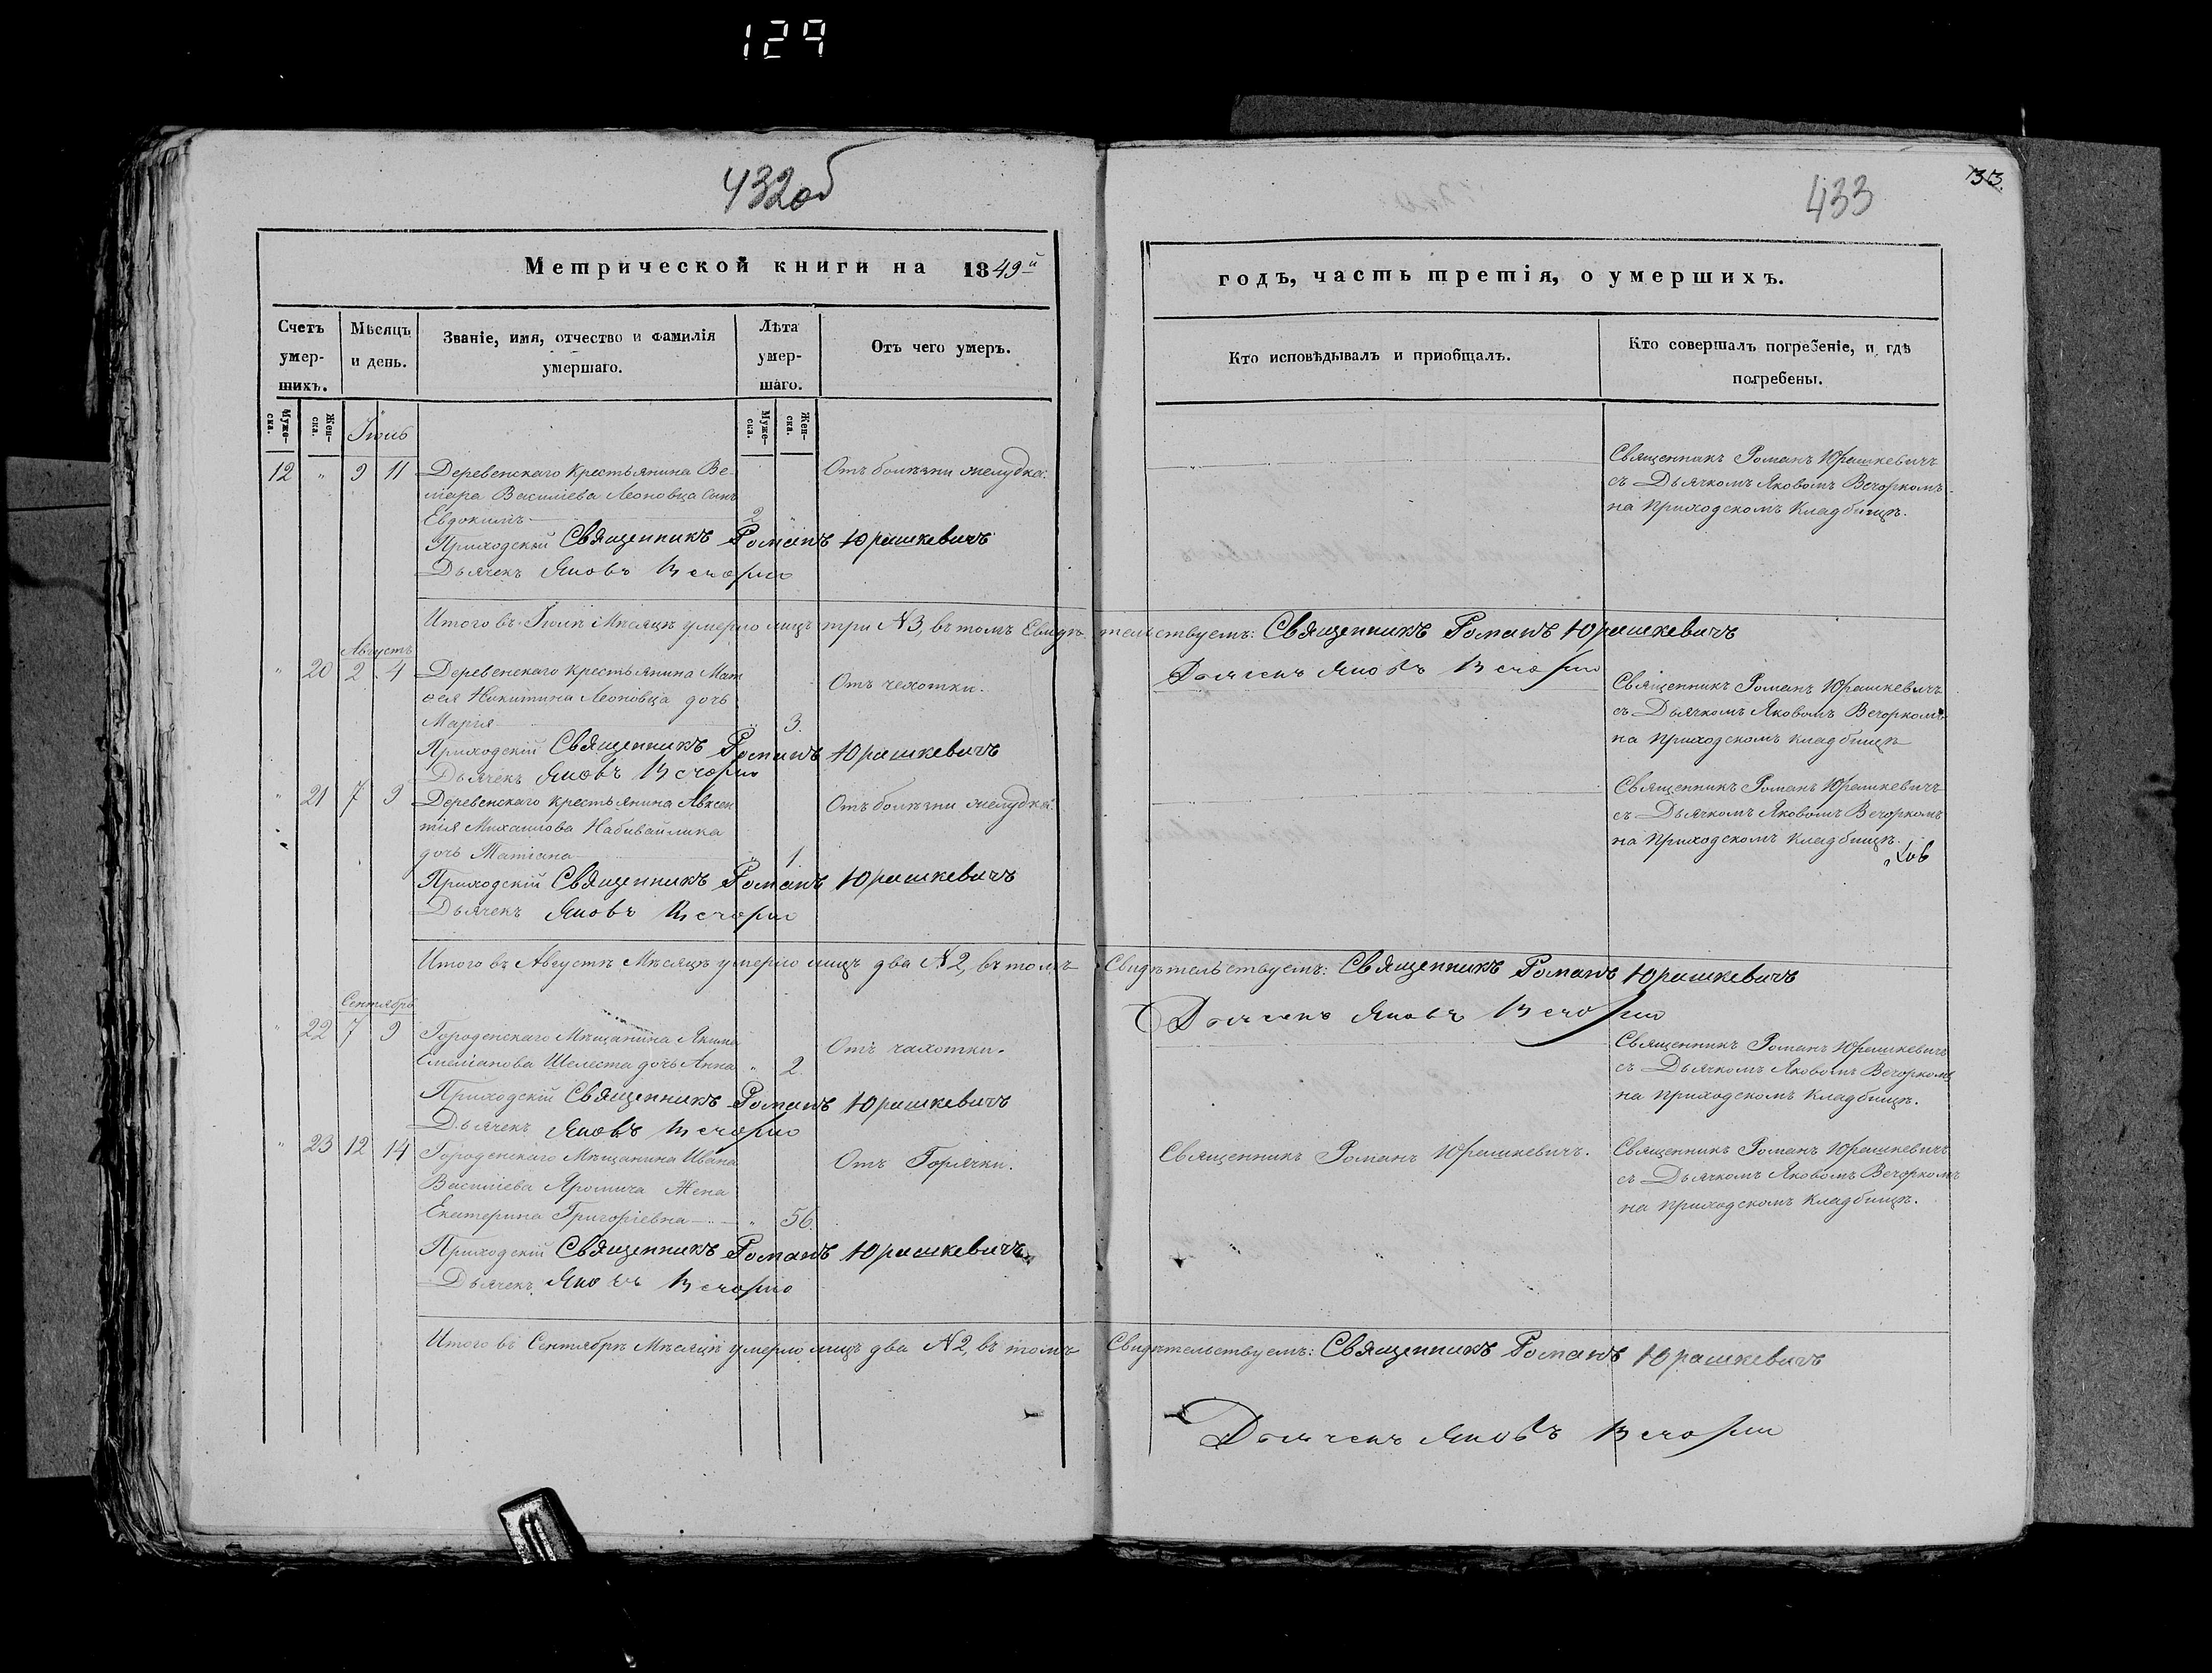 129
432об
Метрической книги на 1849й
Счетъ умер-шихъ.
Мѣсяцъ и день.
Званіе, имя, отчество и фамилія умершаго.
Лѣта умер-шаго.
Отъ чего умеръ.
Муже-ска.
Жен-ска.
Муже-ска.
Жен-ска.
Іюль
12 " 9 11 Деревенскаго крестьянина Ве-
Василіева Леоновца сынъ
Евдокимъ 2 "
Отъ болѣзни желудка.
Приходскій Священникъ Романъ Юрашкевичъ
Дьячекъ Яковъ Вечорко
Итого въ Іюлѣ Мѣсяцѣ умерло лицъ три N3, въ томъ Свидѣ-
Августъ
" 20 2 4 Деревенскаго крестьянина Мат-
ѳея Никитина Леоновца дочь
Марія " 3.
Отъ чехотки.
Приходскій Священникъ Романъ Юрашкевичъ
Дьячекъ Яковъ Вечорко
" 21 7 9 Деревенскаго крестьянина Авксен-
тія Михаилова Набивайлика
дочь Татіана " 1.
Отъ болѣзни желудка.
Приходскій Священникъ Романъ Юрашкевичъ
Дьячекъ Яковъ Вечорко
Итого въ Августѣ Мѣсяцѣ умерло лицъ два N2, въ томъ
Сентябрь
" 22 7 9 Городенскаго Мѣщанина Якима
Емеліанова Шелеста дочь Анна " 2.
Отъ чахотки.
Приходскій Священникъ Романъ Юрашкевичъ
Дьячекъ Яковъ Вечорко
" 23 12 14 Городенскаго Мѣщанина Ивана
Василіева Яромича Жена
Екатерина Григоріевна " 56.
Отъ Горячки.
Приходскій Священникъ Романъ Юрашкевичъ
Дьячекъ Яковъ Вечорко
Итого въ Сентябрѣ Мѣсяцѣ умерло лицъ два N2, въ томъ
433
годъ, часть третія, о умершихъ.
Кто исповѣдывалъ и приобщалъ.
Кто совершалъ погребеніе, и гдѣ погребены.
Священникъ Романъ Юрашкевичъ
съ Дьячкомъ Яковомъ Вечоркомъ
на приходскомъ кладбищѣ.
тельствуемъ: Священникъ Романъ Юрашкевичъ
Дьячекъ Яковъ Вечорко
Священникъ Романъ Юрашкевичъ
съ Дьячкомъ Яковомъ Вечоркомъ
на приходскомъ кладбищѣ
Священникъ Романъ Юрашкевичъ
съ Дьячкомъ Яковомъ Вечоркомъ
на приходскомъ кладбищѣ.
Свидѣтельствуемъ: Священникъ Романъ Юрашкевичъ
Дьячекъ Яковъ Вечорко
Священникъ Романъ Юрашкевичъ
съ Дьячкомъ Яковомъ Вечоркомъ
на приходскомъ кладбищѣ.
Священникъ Романъ Юрашкевичъ.
Священникъ Романъ Юрашкевичъ
съ Дьячкомъ Яковомъ Вечоркомъ
на приходскомъ кладбищѣ.
Свидѣтельствуемъ: Священникъ Романъ Юрашкевичъ
Дьячекъ Яковъ Вечорко